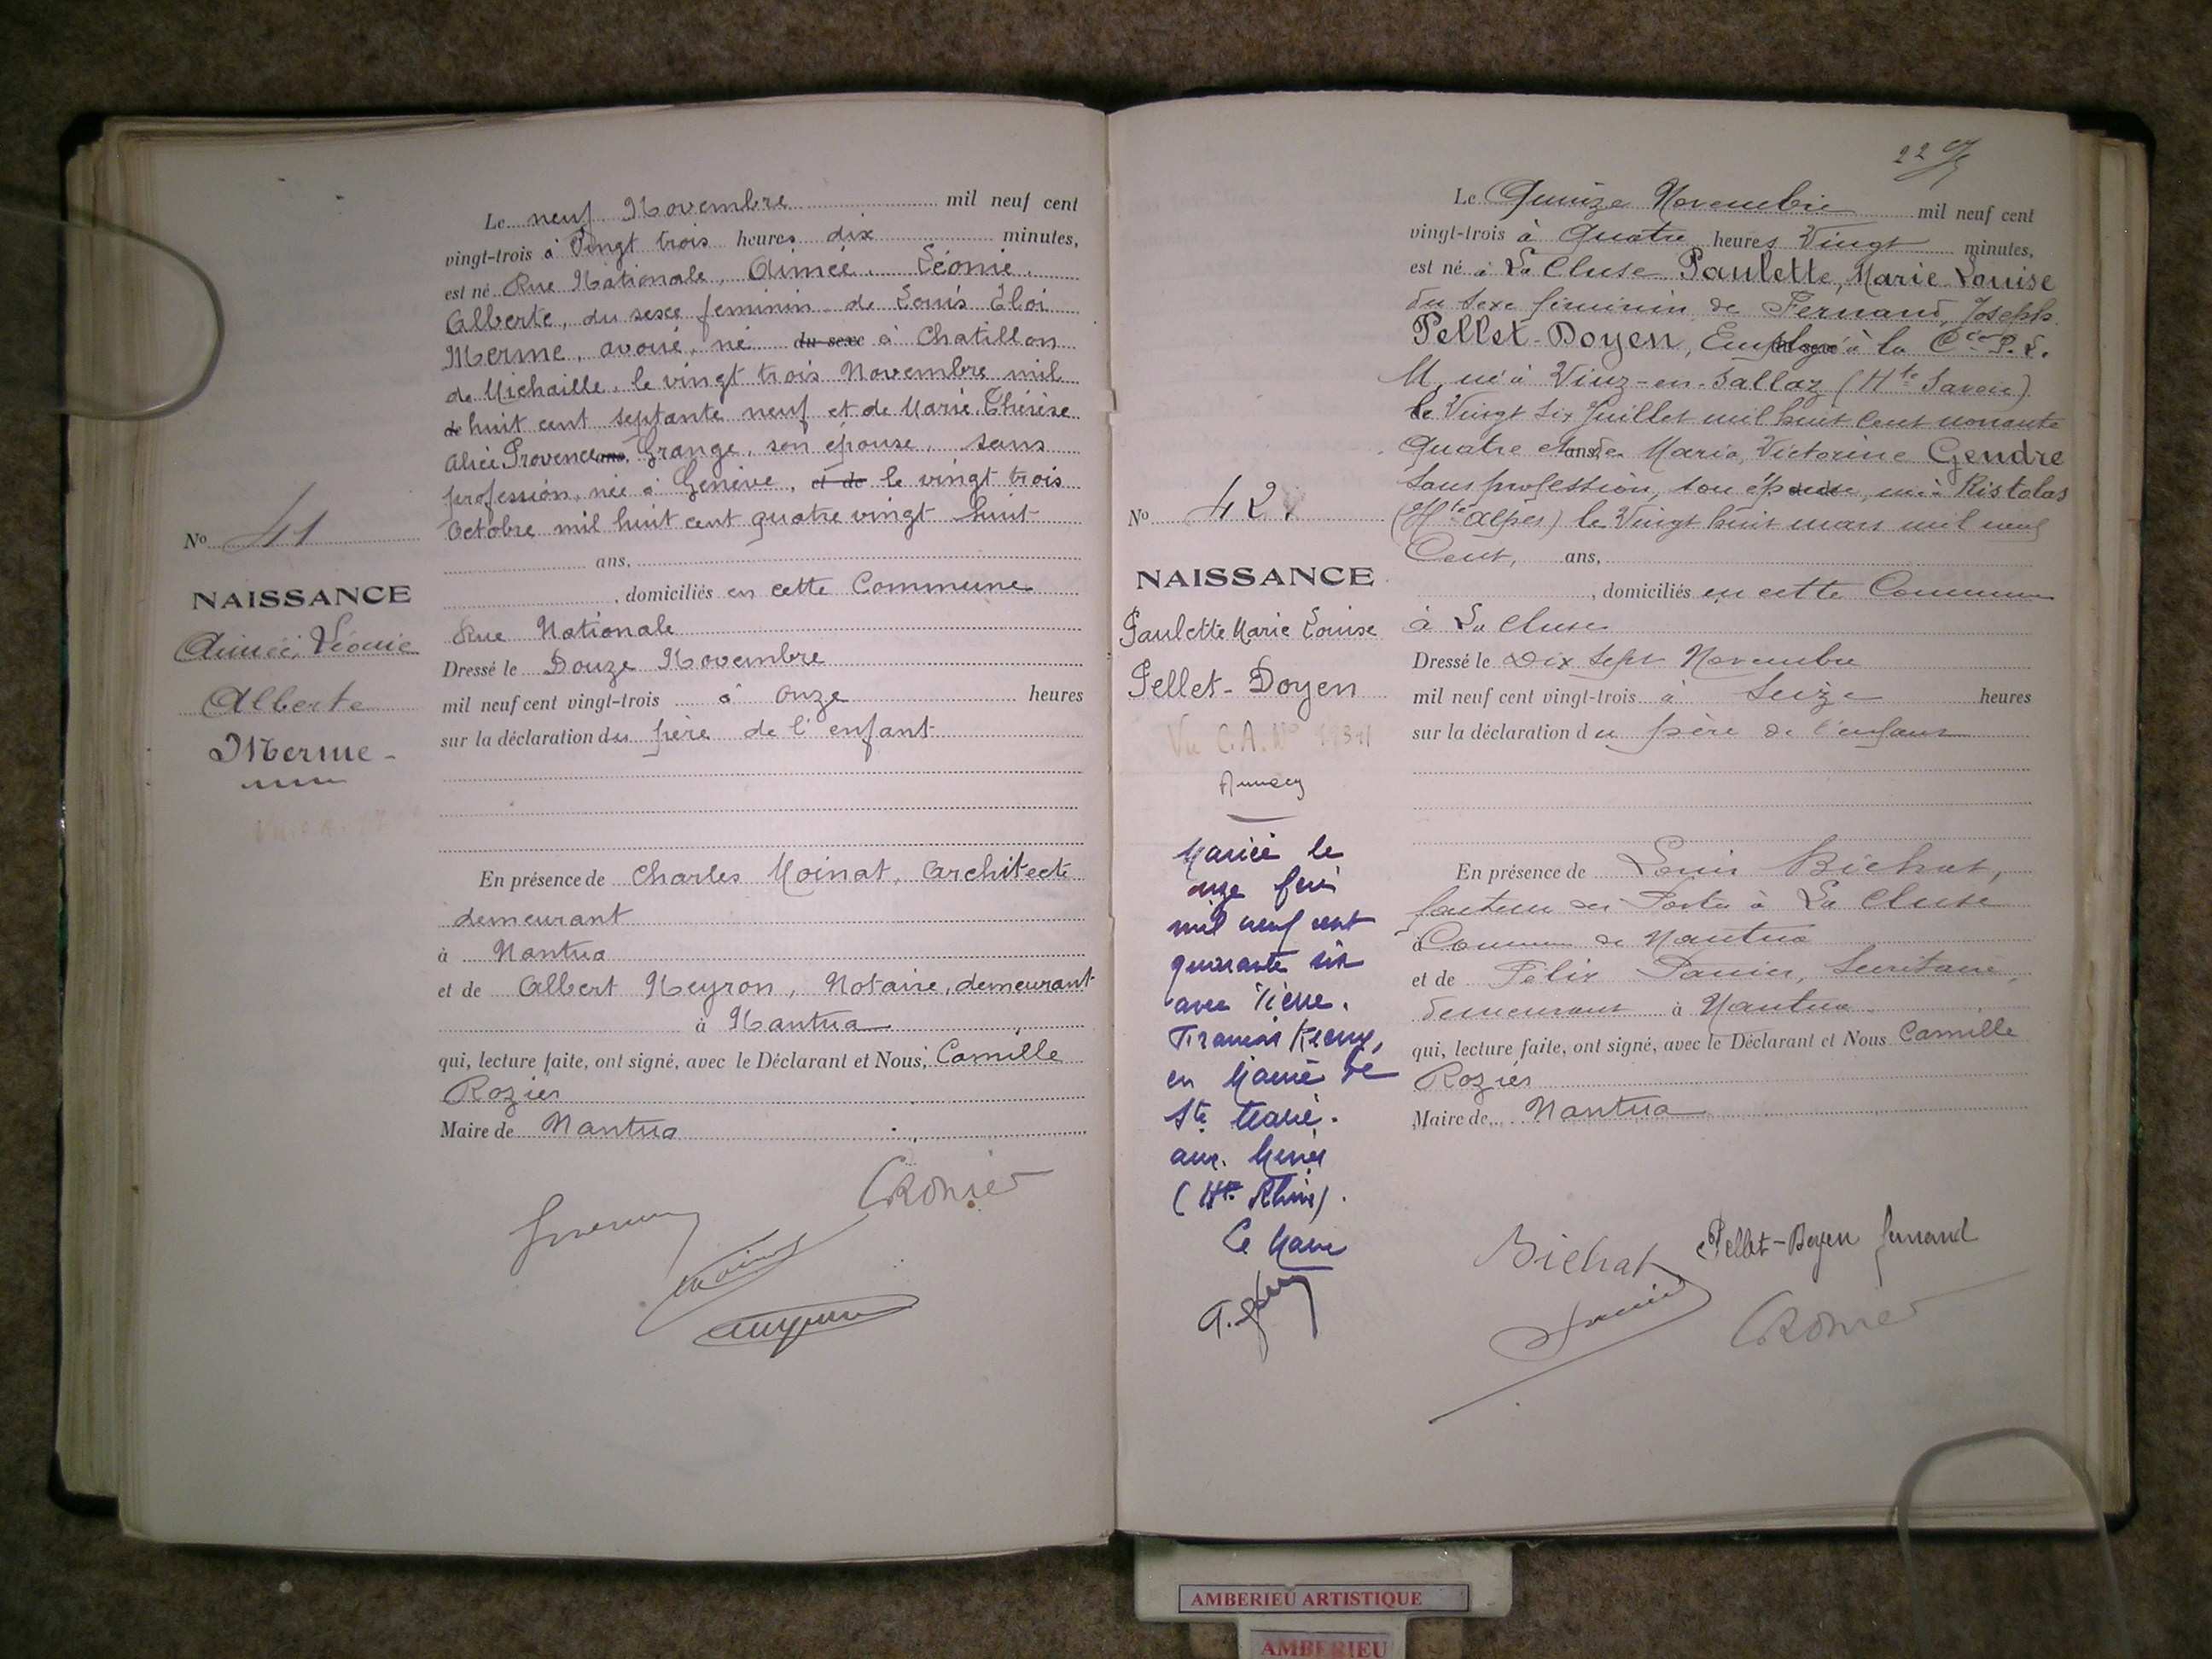 Le neuf Novembre mil neuf cent
vingt-trois à Vingt trois heures dix minutes,
est né Rue Nationale, Aimée, Léonie,
Alberte, du sexe feminin de Louis Eloi
Merme, avoué, né du sexe à Chatillon
de Michaille, le vingt trois Novembre mil
de huit cent septante neuf et de Marie, Thérèse
Alice Provence ans, Grange, son épouse, sans
profession, née à Genève, et de le vingt trois
Octobre mil huit cent quatre vingt huit
ans,
, domiciliés en cette Commune
Rue Nationale
Dressé le Douze Novembre
mil neuf cent vingt-trois à onze heures
sur la déclaration du père de l'enfant
En présence de Charles Moinat, architecte
demeurant
à Nantua
et de Albert Neyron, Notaire, demeurant
à Nantua
qui, lecture faite, ont signé, avec le Déclarant et Nous, Camille
Rozier
Maire de Nantua
No 41
NAISSANCE
Aimée, Léonie
Alberte
Merme
CRozier
22
Le Quinze Novembre mil neuf cent
vingt-trois à Quatre heures Vingt minutes,
est né à La Cluse Paulette, Marie Louise
du sexe féminin de Fernand, Joseph
Pellet-Doyen, Employé à la Cie P. L.
M, né à Viuz-en-Sallaz (Hte Savoie)
le Vingt six Juillet mil huit cent nonante
Quatre et de ans, Marie, Victorine Gendre
sans profession, son épouse, née à Ristolas
(Htes Alpes) le Vingt huit mars mil neuf
Cent, ans,
, domiciliés en cette Commune
à La Cluse
Dressé le Dix sept Novembre
mil neuf cent vingt-trois à Seize heures
sur la déclaration du père de l'enfant
En présence de Louis Bichat,
facteur des Postes à La Cluse
à Commune de Nantua
et de Félix Panier, Secrétaire,
demeurant à Nantua
qui, lecture faite, ont signé, avec le Déclarant et Nous Camille
Rozier
Maire de Nantua
No 42
NAISSANCE
Paulette Marie Louise
Pellet-Doyen
Vu C.A. No
Annecy
Mariée le
onze
mil neuf cent
quarante six
avec Pierre,
François
en Mairie de
Ste Marie
aux Mines
(Ht Rhin).
Le Maire
Bichat
Pellet-Doyen fernand
CRozier
AMBERIEU ARTISTIQUE
AMBERIEU